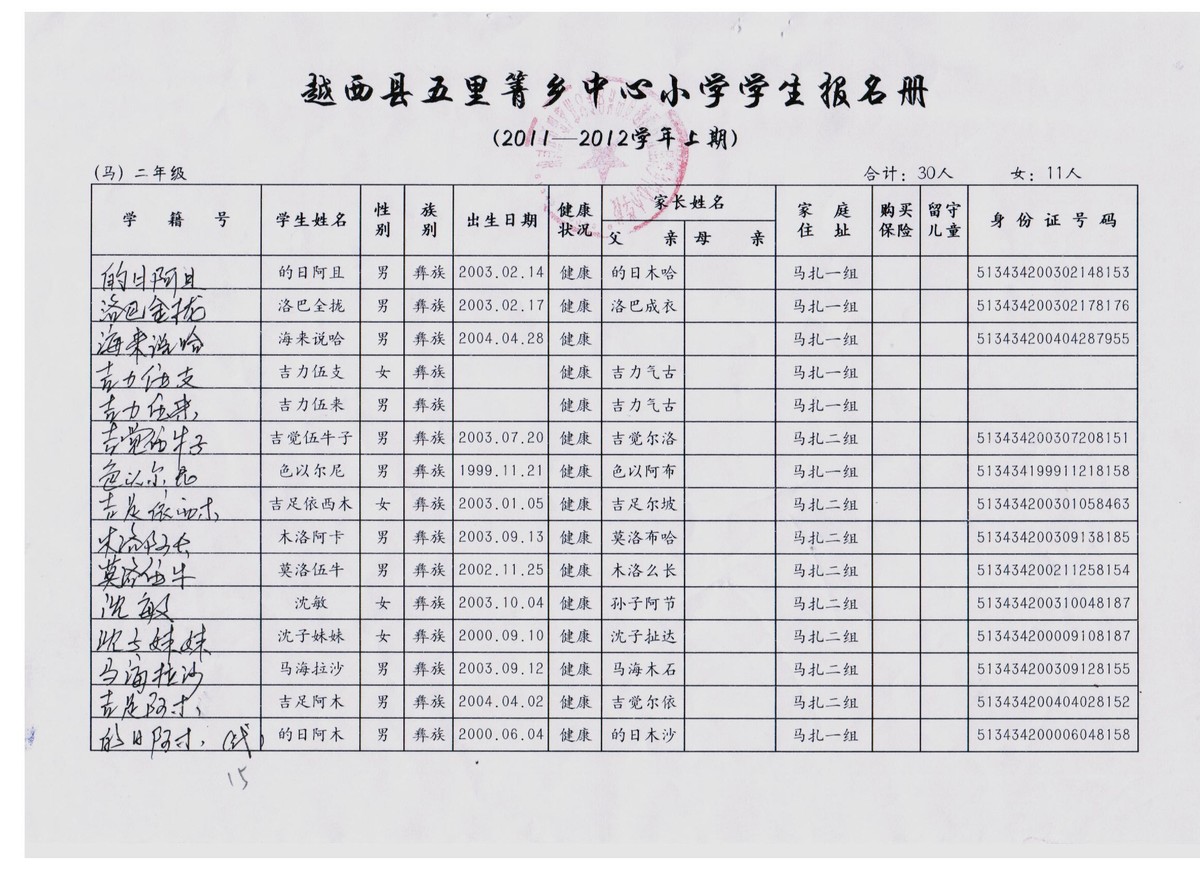 越西县五里箐乡中心小学学生报名册
(2011—2012学年上期)
(马) 二年级 合计: 30人 女: 11人
学 籍 号 学生姓名 性别 族别 出生日期 健康状况 家长姓名 父 亲 母 亲 家 庭 住 址 购买保险 留守儿童 身 份 证 号 码
的日阿且 的日阿且 男 彝族 2003.02.14 健康 的日木哈 马扎一组 513434200302148153
洛巴全拢 洛巴全拢 男 彝族 2003.02.17 健康 洛巴成衣 马扎一组 513434200302178176
海来说哈 海来说哈 男 彝族 2004.04.28 健康 马扎一组 513434200404287955
吉力伍支 吉力伍支 女 彝族 健康 吉力气古 马扎一组
吉力伍来 吉力伍来 男 彝族 健康 吉力气古 马扎一组
吉觉伍牛子 吉觉伍牛子 男 彝族 2003.07.20 健康 吉觉尔洛 马扎二组 513434200307208151
色以尔尼 色以尔尼 男 彝族 1999.11.21 健康 色以阿布 马扎一组 513434199911218158
吉足依西木 吉足依西木 女 彝族 2003.01.05 健康 吉足尔坡 马扎二组 513434200301058463
木洛阿卡 男 彝族 2003.09.13 健康 莫洛布哈 马扎二组 513434200309138185
莫洛伍牛 莫洛伍牛 男 彝族 2002.11.25 健康 木洛么长 马扎二组 513434200211258154
沈敏 沈敏 女 彝族 2003.10.04 健康 孙子阿节 马扎二组 513434200310048187
沈子妹妹 沈子妹妹 女 彝族 2000.09.10 健康 沈子扯达 马扎二组 513434200009108187
马海拉沙 马海拉沙 男 彝族 2003.09.12 健康 马海木石 马扎二组 513434200309128155
吉足阿木 吉足阿木 男 彝族 2004.04.02 健康 吉觉尔依 马扎二组 513434200404028152
的日阿木 (代) 的日阿木 男 彝族 2000.06.04 健康 的日木沙 马扎一组 513434200006048158
15